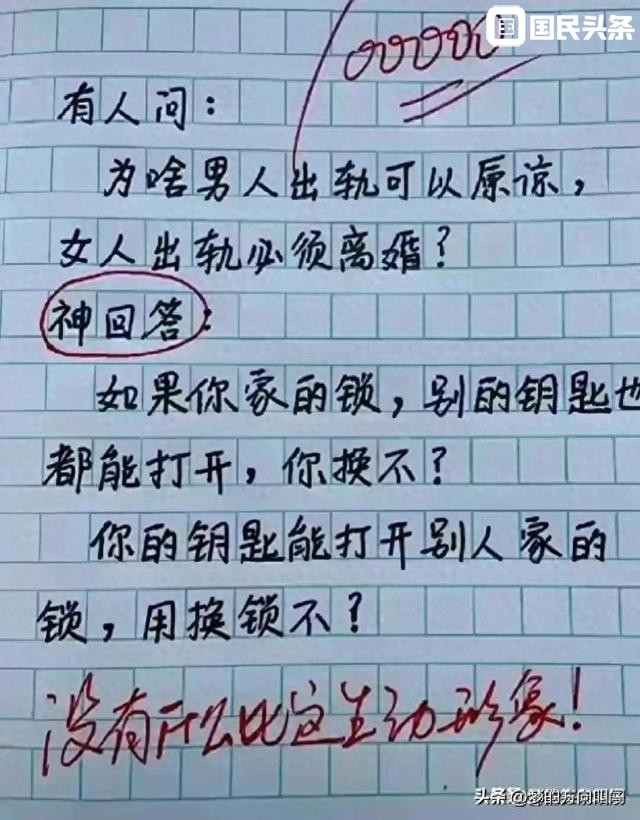 国民头条
有人问：
为啥男人出轨可以原谅，
女人出轨必须离婚？
神回答：
如果你家的锁，别的钥匙也
都能打开，你换不？
你的钥匙能打开别人家的
锁，用换锁不？
没有什么比这生动形象！
头条 @梦的方向叫闯